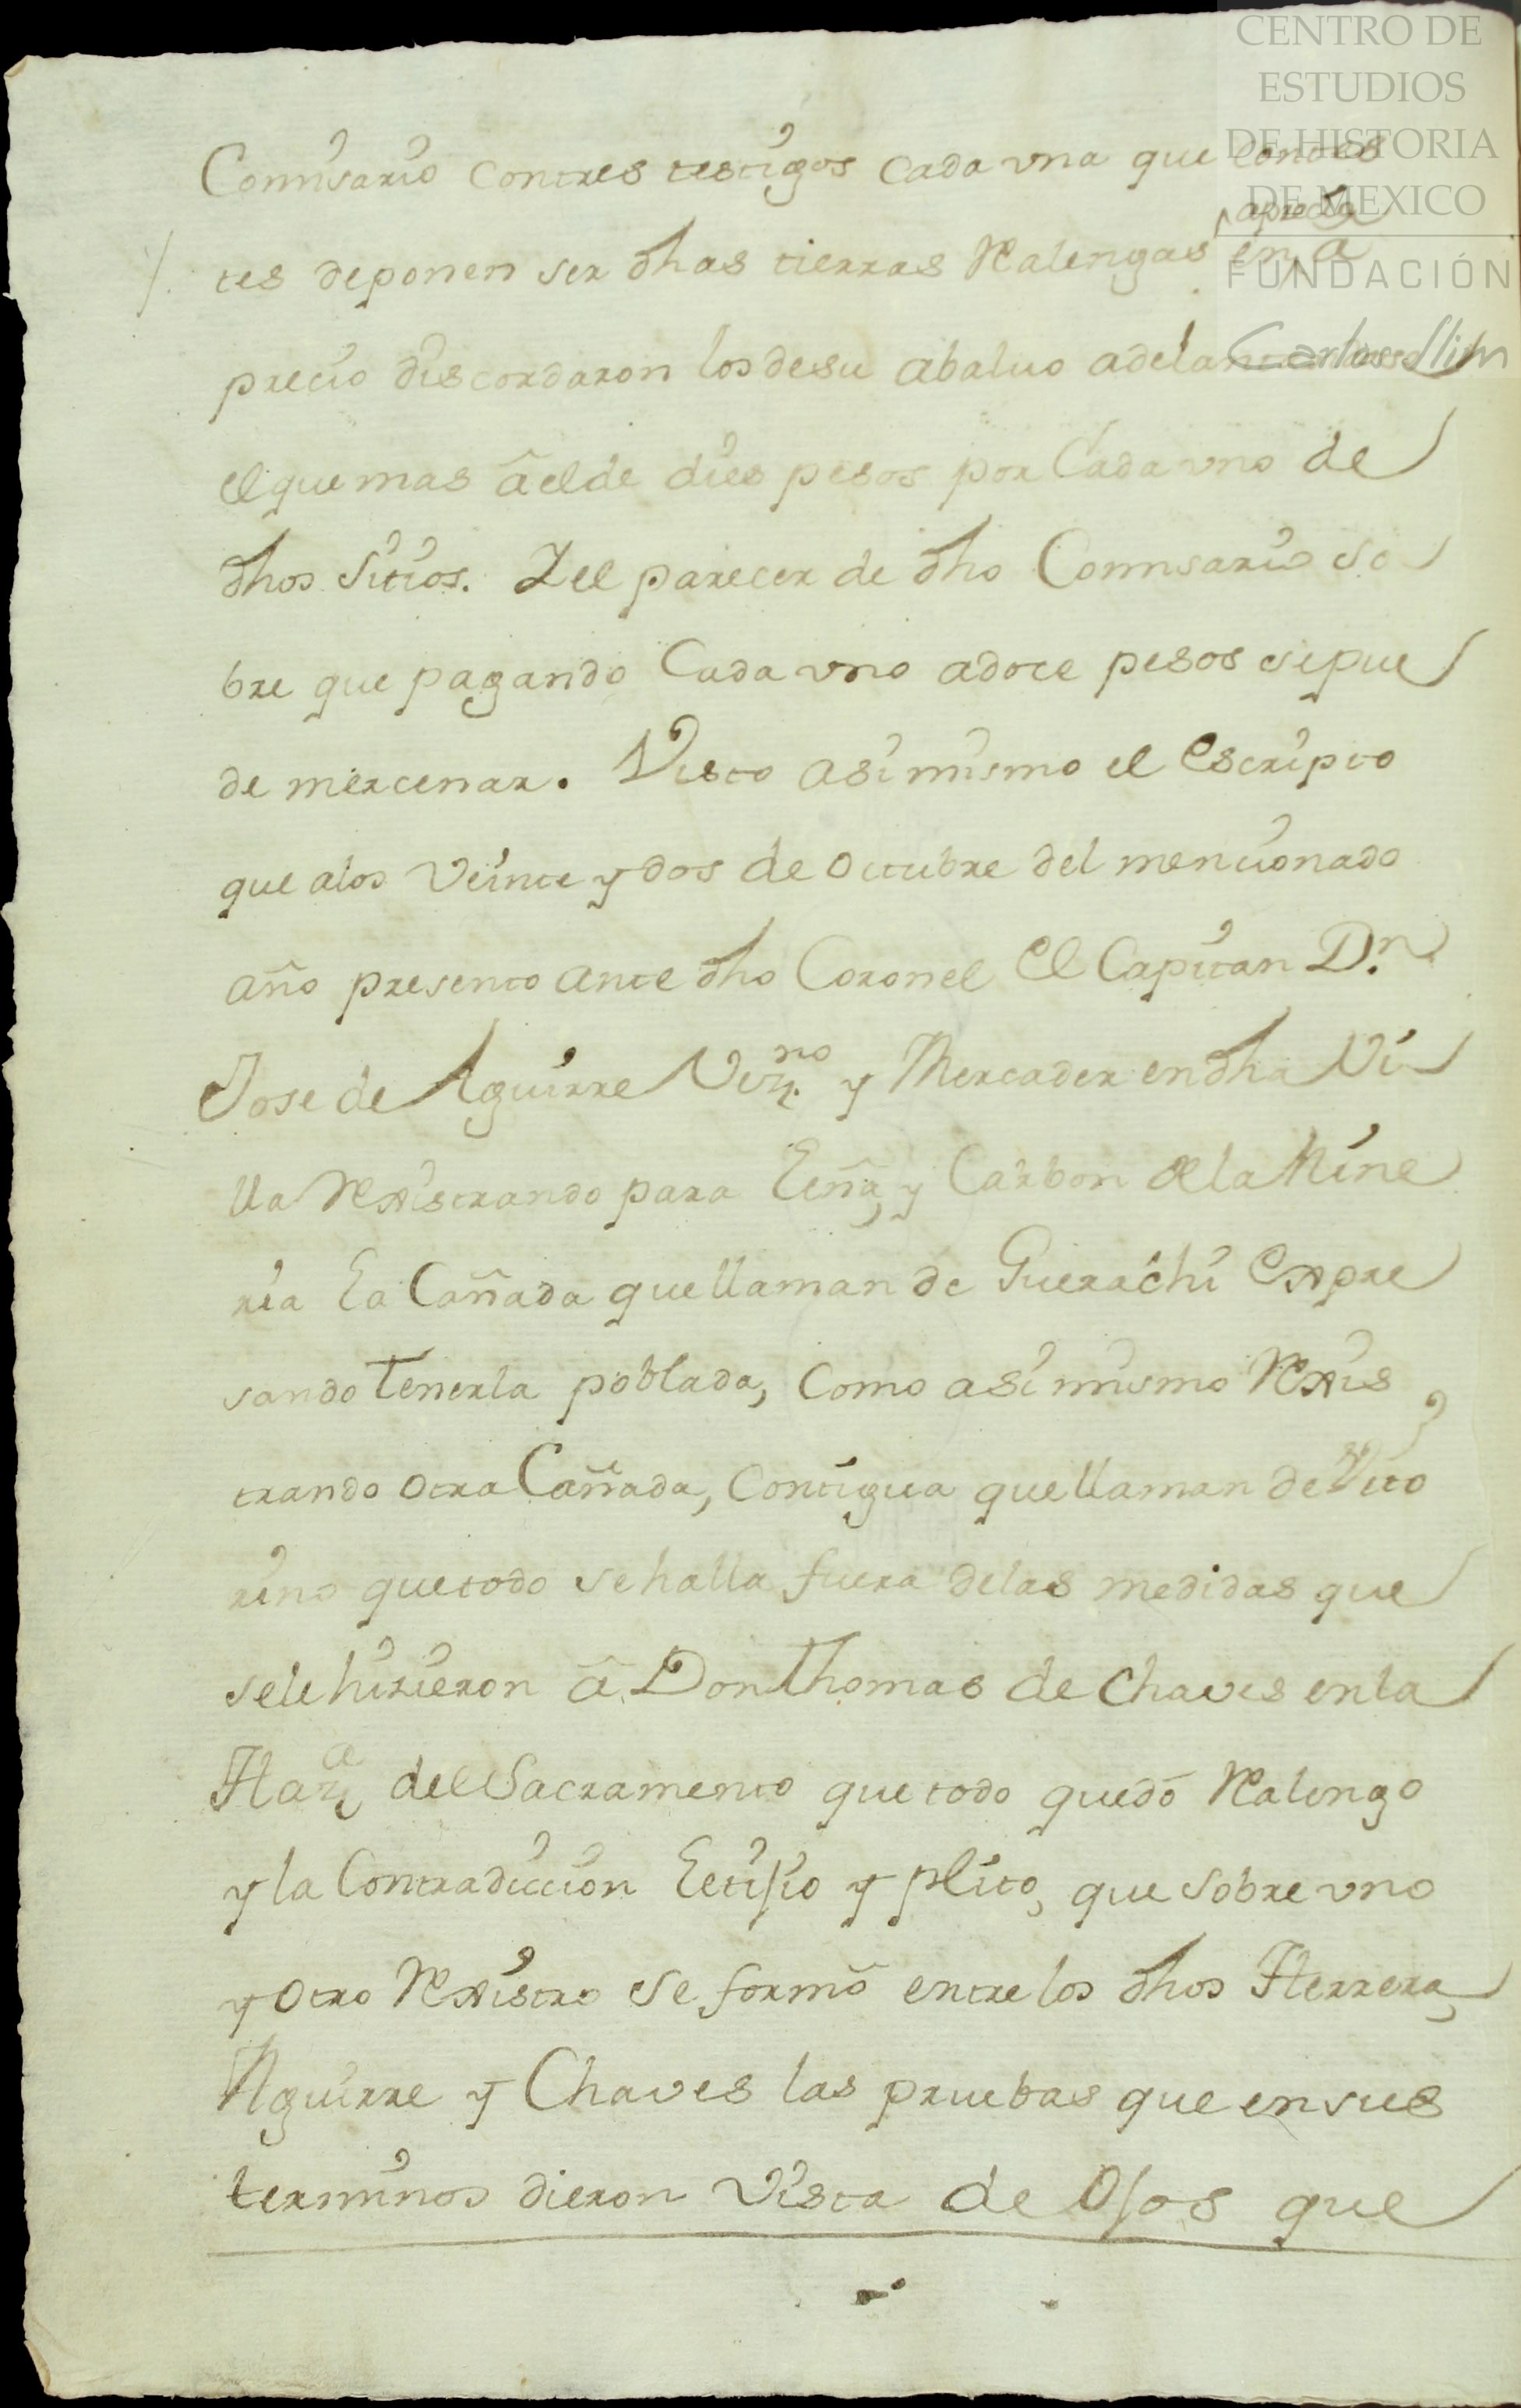 CENTRO DE
ESTUDIOS
DE HISTORIA
DE MEXICO
FUNDACIÓN
Carlos Slim
Comisario contres testigos cada una que contes
tes deponen ser dhas tierras Ralengas en a
precio discordaron los desu abaluo
el que mas â elde dies pesos por Cada uno de
dhos Sitios. Y el parecer de dho Comisario so
bre que pagando Cada uno adoce pesos sepue
de mercenar. Visto asimismo el escripto
que alos Veinte y dos de octubre del mencionado
año presento ante dho Coronel el Capitan Dn.
Jose de Aguirre Vezno. y Mercader en dha Vi
lla Rexistrando para Leña, y Carbon de la Mine
ria La Cañada que llaman de Guerachi expre
sando tenerla poblada, como asimismo Rexis
trando otra Cañada, contigua que llaman de Vito
rino que todo se halla fuera delas medidas que
sele hizieron â Don Thomas de Chaves en la
Hazda del Sacramento que todo quedó Ralengo
y la Contradiccion Letijio y plito, que sobre uno
y otro Rexistro se formô entre los dhos Herrera,
Aguirre y Chaves las pruebas que en sus
terminos dieron Vista de Ojos que